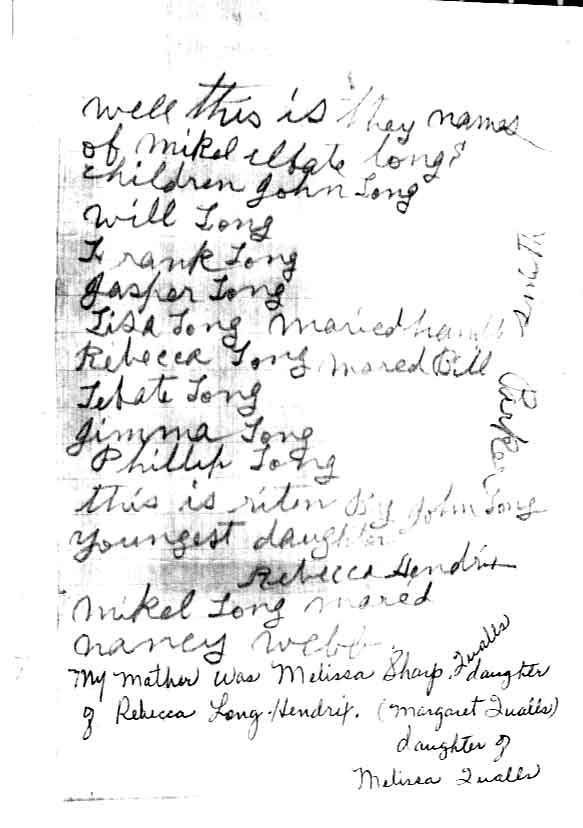 well this is they names
of mikel elbate long's
children John Long
Will Long
Frank Long
Jasper Long
Lisa Long Maried
Rebecca Long mared Bill
Lebate Long
Jimma Long
Phillip Long
this is riten By John Long
youngest daughter
Rebecca Hendrix
Mikel Long mared
nancy webb.
My mother was Melissa Sharp Qualls daughter
of Rebecca Long-Hendrix. (Margaret Qualls)
daughter of
Melissa Qualls